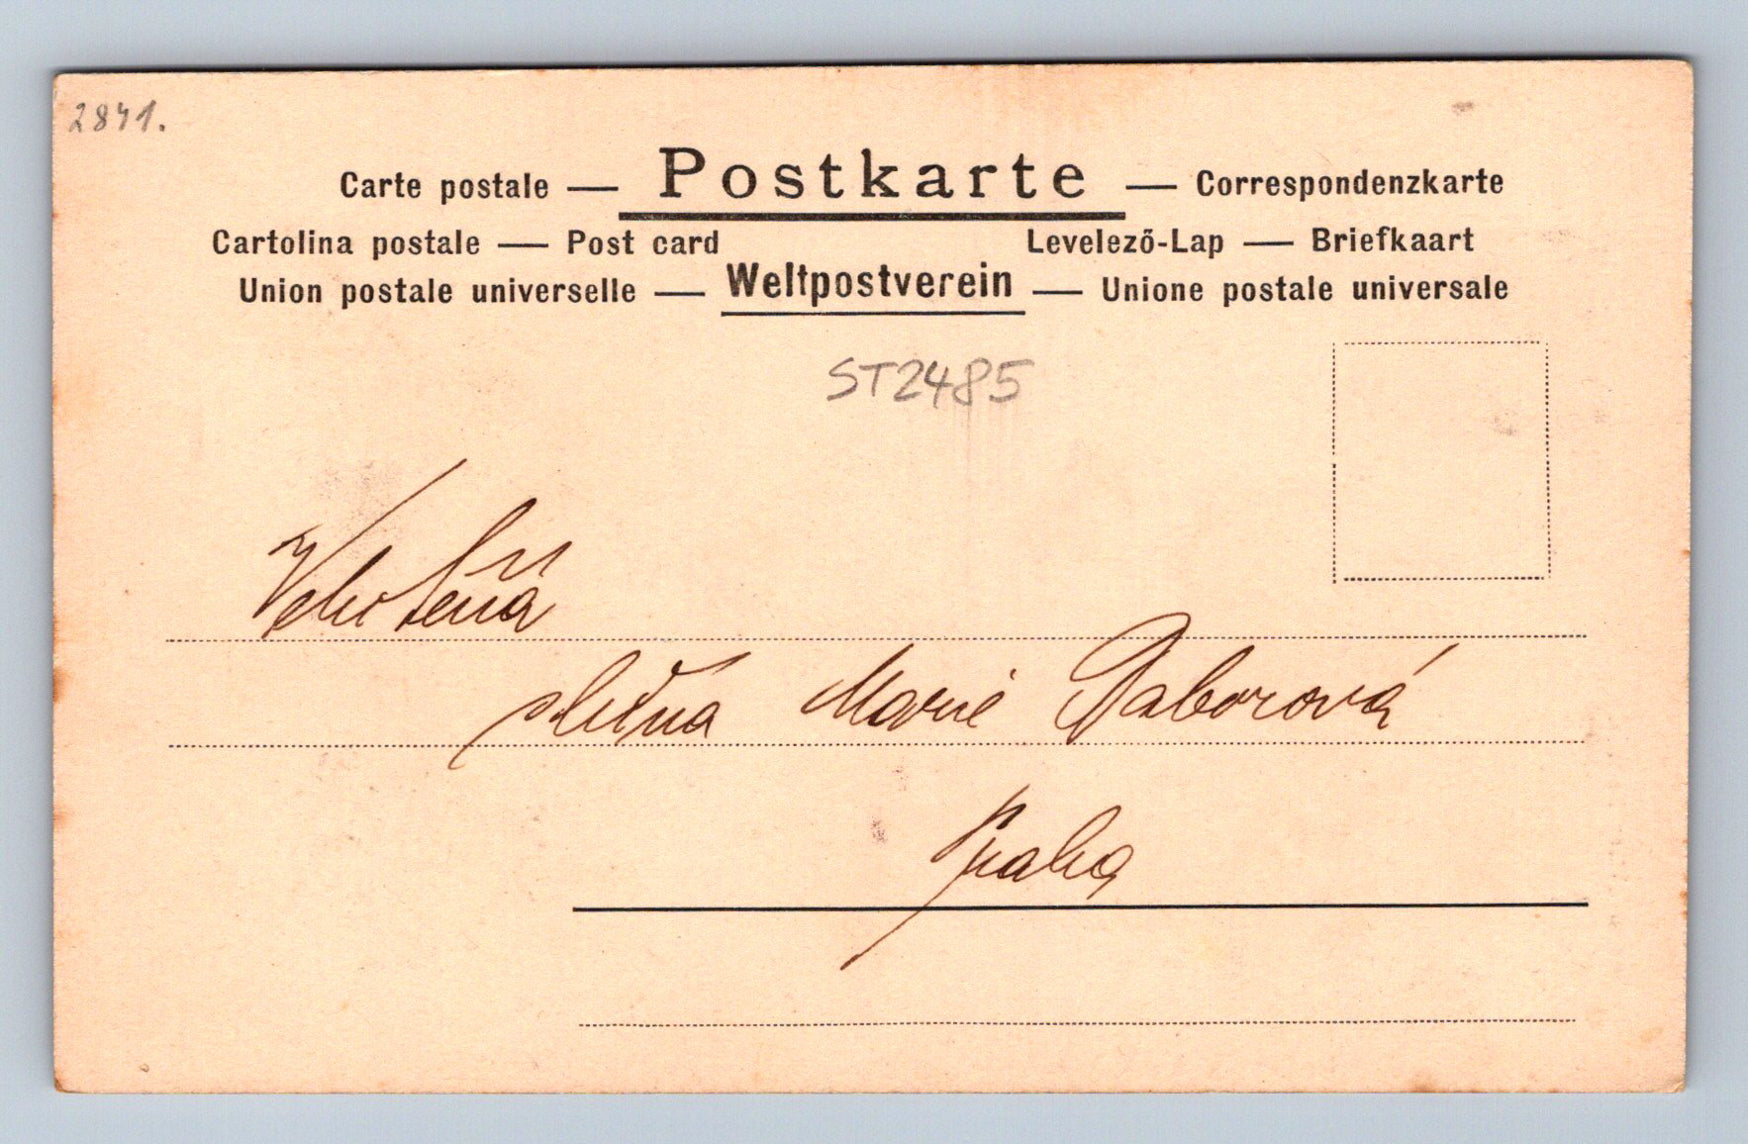 2841.
Carte postale — Postkarte — Correspondenzkarte
Cartolina postale — Post card Levelező-Lap — Briefkaart
Union postale universelle — Weltpostverein — Unione postale universale
ST2485
Velectěná
slečna Marie Taborová
Praha